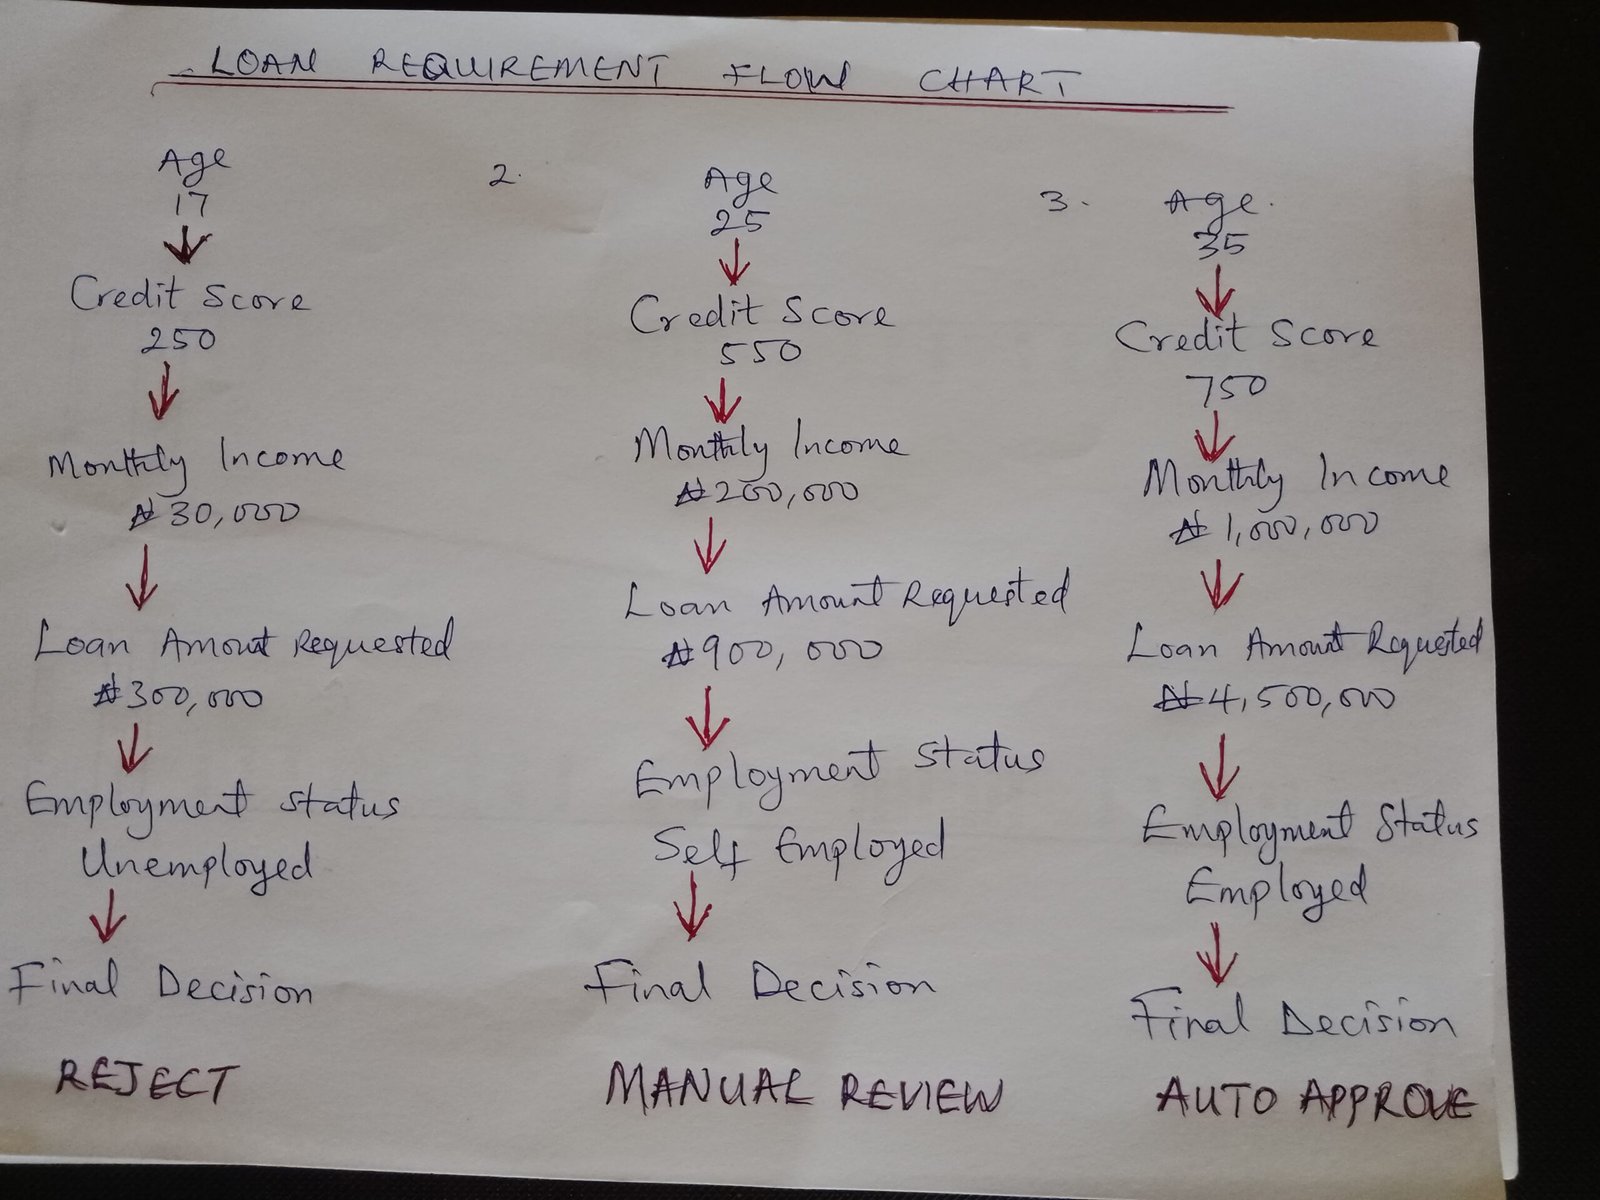 LOAN REQUIREMENT FLOW CHART
Age
17
Credit Score
250
Monthly Income
₦30,000
Loan Amount Requested
₦300,000
Employment Status
Unemployed
Final Decision
REJECT
2.
Age
25
Credit Score
550
Monthly Income
₦200,000
Loan Amount Requested
₦900,000
Employment Status
Self Employed
Final Decision
MANUAL REVIEW
3.
Age.
35
Credit Score
750
Monthly Income
₦1,000,000
Loan Amount Requested
₦4,500,000
Employment Status
Employed
Final Decision
AUTO APPROVE